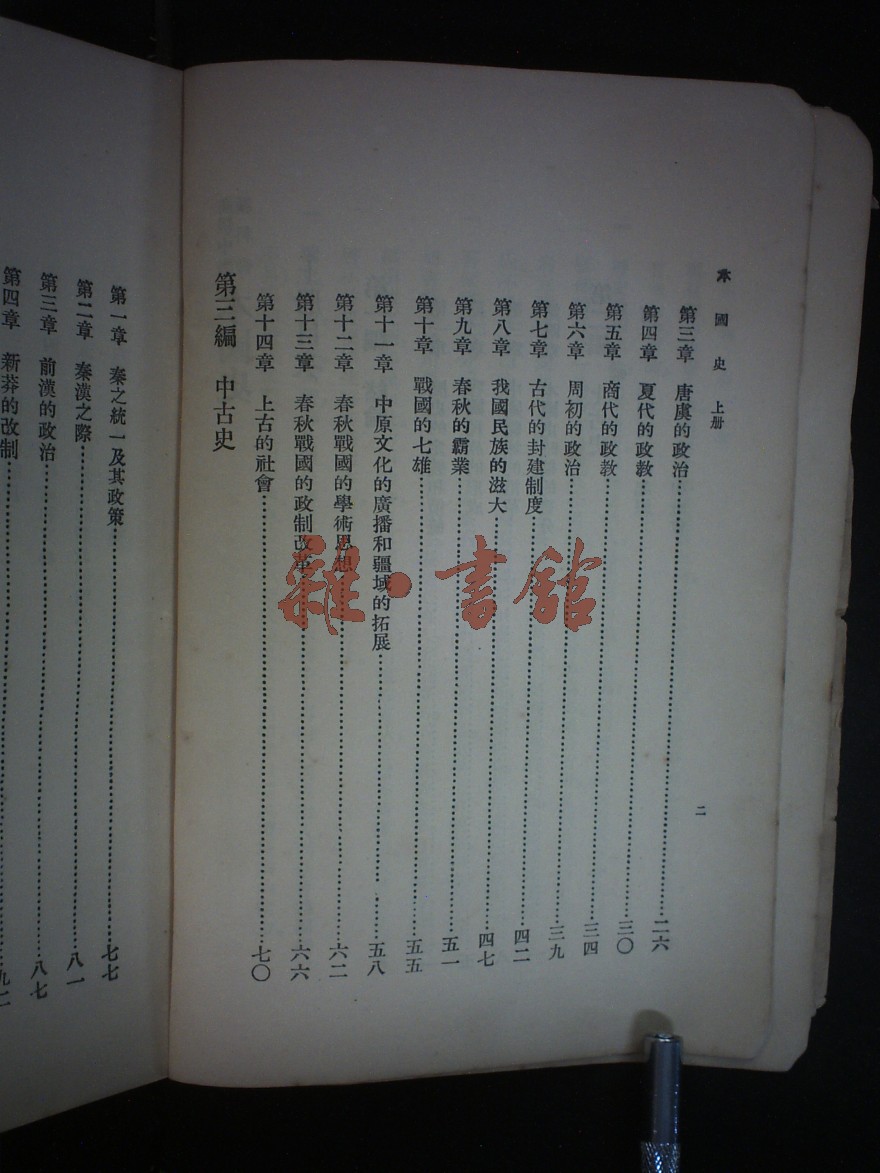 本國史 上册
二
第三章 唐虞的政治……二六
第四章 夏代的政教……三〇
第五章 商代的政教……三四
第六章 周初的政治……三九
第七章 古代的封建制度……四二
第八章 我國民族的滋大……四七
第九章 春秋的霸業……五一
第十章 戰國的七雄……五五
第十一章 中原文化的廣播和疆域的拓展……五八
第十二章 春秋戰國的學術思想……六二
第十三章 春秋戰國的政制改革……六六
第十四章 上古的社會……七〇
第三編 中古史
第一章 秦之統一及其政策……七七
第二章 秦漢之際……八一
第三章 前漢的政治……八七
第四章 新莽的改制……九二
雜·書館